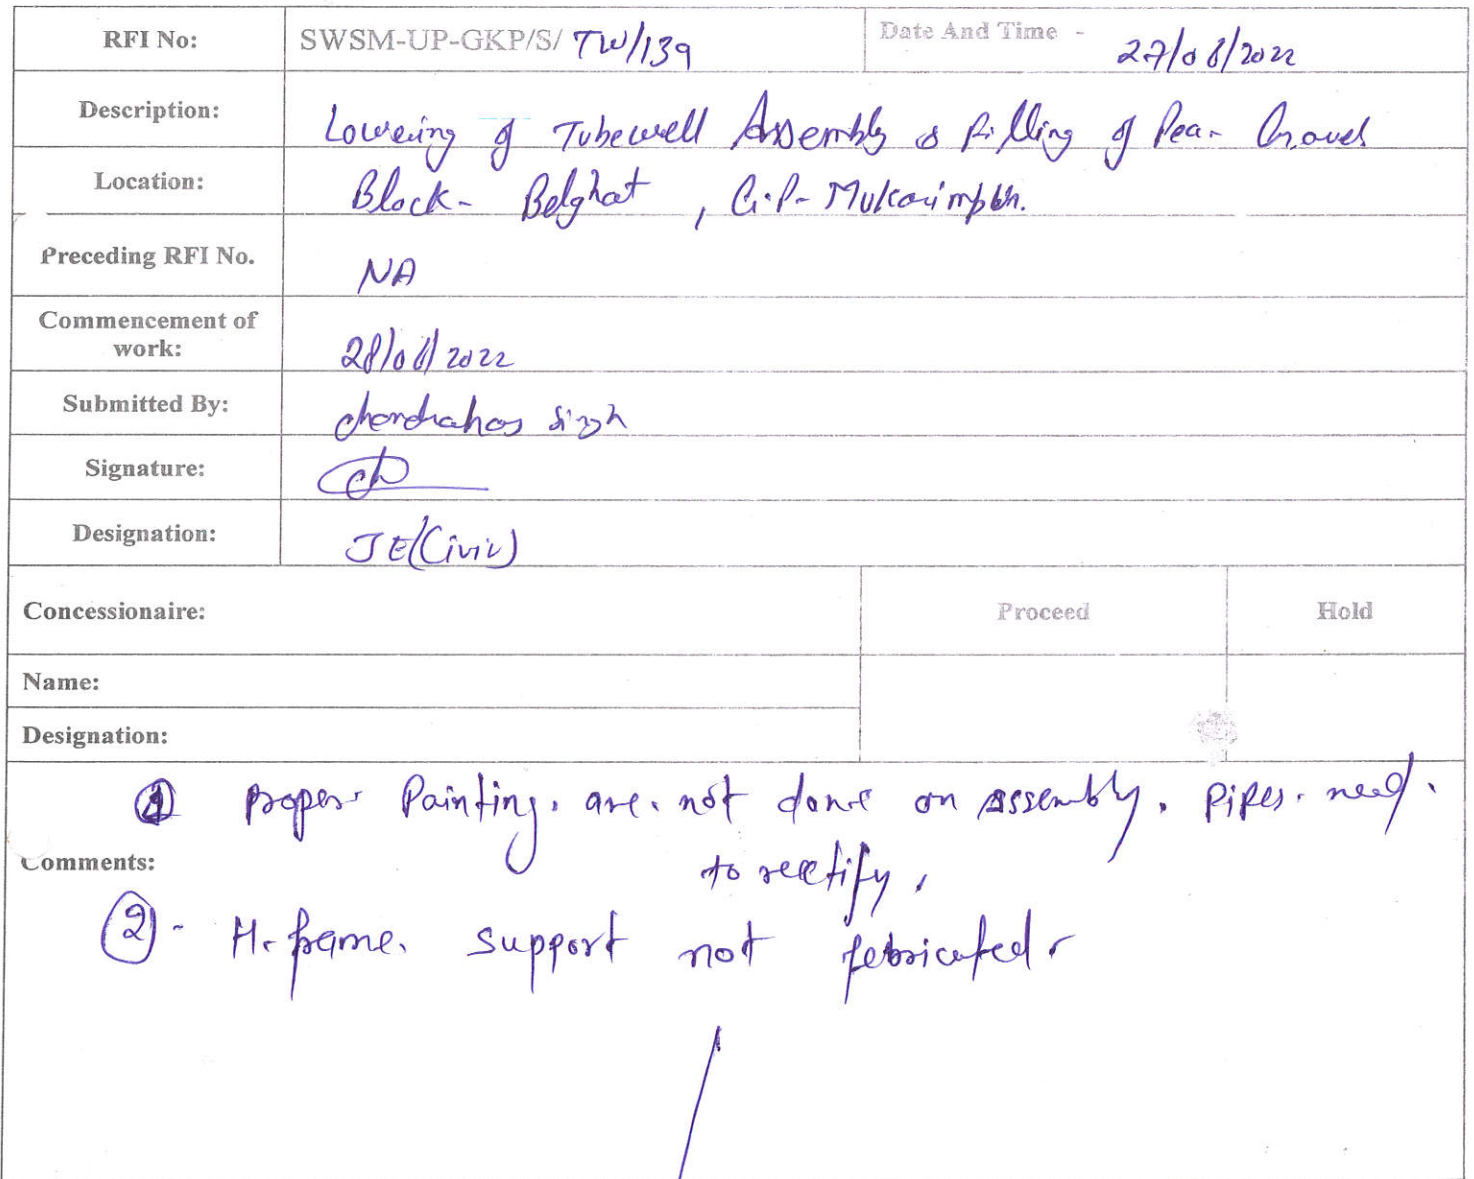 RFI No: SWSM-UP-GKP/S/ TW/139 Date And Time - 27/08/2022
Description: Lowering of Tubewell Assembly & filling of Pea- Gravel
Location: Block- Belghat , G.P- Mukarimpur.
Preceding RFI No. NA
Commencement of
work: 28/08/2022
Submitted By: Chandrahas Singh
Signature:
Designation: JE(Civil)
Concessionaire: Proceed Hold
Name:
Designation:
① proper Painting. are. not done on assembly. Pipes. need.
to rectify.
Comments:
② - H-frame. support not febricated.